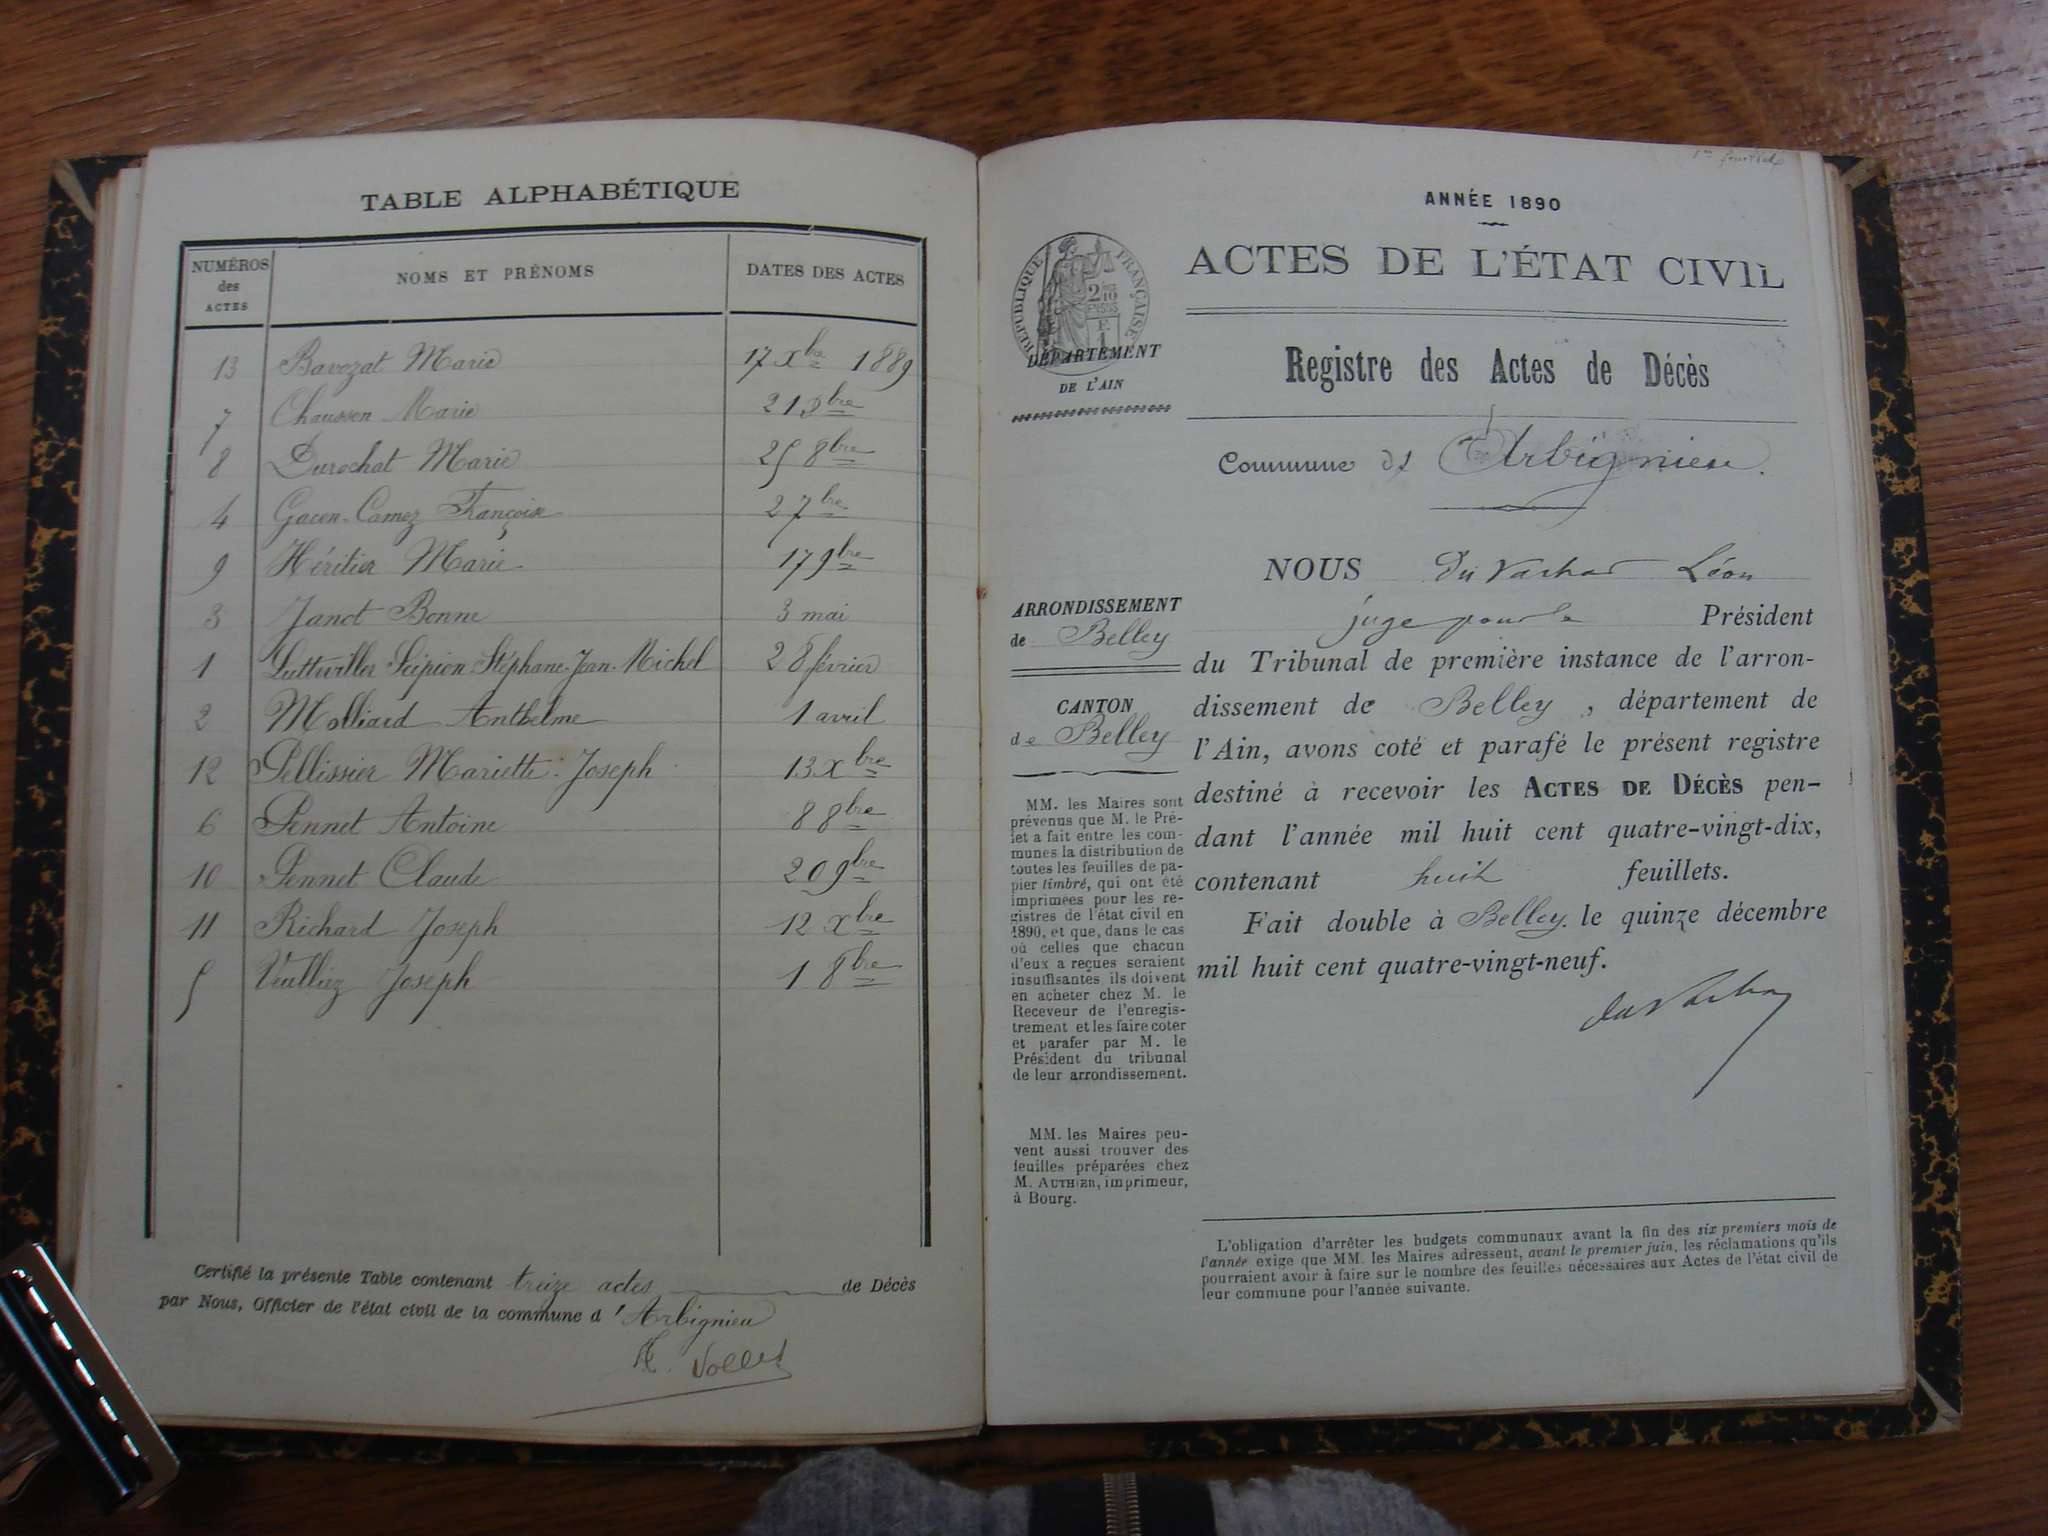 TABLE ALPHABÉTIQUE
NUMÉROS des ACTES
NOMS ET PRÉNOMS
DATES DES ACTES
13 Bavozat Marie 17 Xbre 1889
7 Chausson Marie
8 Durochat Marie 25 8bre
4 Gacon-Camoz Françoise 2 7bre
9 Héritier Marie 17 9bre
3 Janot Benne 3 mai
1 Scipion-Stéphane-Jean-Michel 28 février
2 Molliard Anthelme 1 avril
12 Pellissier Mariette-Joseph 13 Xbre
6 Pennet Antoine 8 8bre
10 Pennet Claude 20 9bre
11 Richard Joseph 12 Xbre
5 Joseph 1 8bre
Certifié la présente Table contenant treize actes de Décès
par Nous, Officier de l'état civil de la commune d'Arbignieu
ANNÉE 1890
ACTES DE L'ÉTAT CIVIL
RÉPUBLIQUE FRANÇAISE
DÉPARTEMENT
DE L'AIN
Registre des Actes de Décès
Commune d' Arbignieu.
ARRONDISSEMENT
de Belley
CANTON
de Belley
MM. les Maires sont
prévenus que M. le Pré-
fet a fait entre les com-
munes la distribution de
toutes les feuilles de pa-
pier timbré, qui ont été
imprimées pour les re-
gistres de l'état civil en
1890, et que, dans le cas
où celles que chacun
d'eux a reçues seraient
insuffisantes, ils doivent
en acheter chez M. le
Receveur de l'enregis-
trement et les faire coter
et parafer par M. le
Président du tribunal
de leur arrondissement.
MM. les Maires peu-
vent aussi trouver des
feuilles préparées chez
M. AUTHIER, imprimeur,
à Bourg.
NOUS Du Vachat Léon
juge pour le Président
du Tribunal de première instance de l'arron-
dissement de Belley, département de
l'Ain, avons coté et parafé le présent registre
destiné à recevoir les ACTES DE DÉCÈS pen-
dant l'année mil huit cent quatre-vingt-dix,
contenant huit feuillets.
Fait double à Belley, le quinze décembre
mil huit cent quatre-vingt-neuf.
du Vachat
L'obligation d'arrêter les budgets communaux avant la fin des six premiers mois de
l'année exige que MM. les Maires adressent, avant le premier juin, les réclamations qu'ils
pourraient avoir à faire sur le nombre des feuilles nécessaires aux Actes de l'état civil de
leur commune pour l'année suivante.